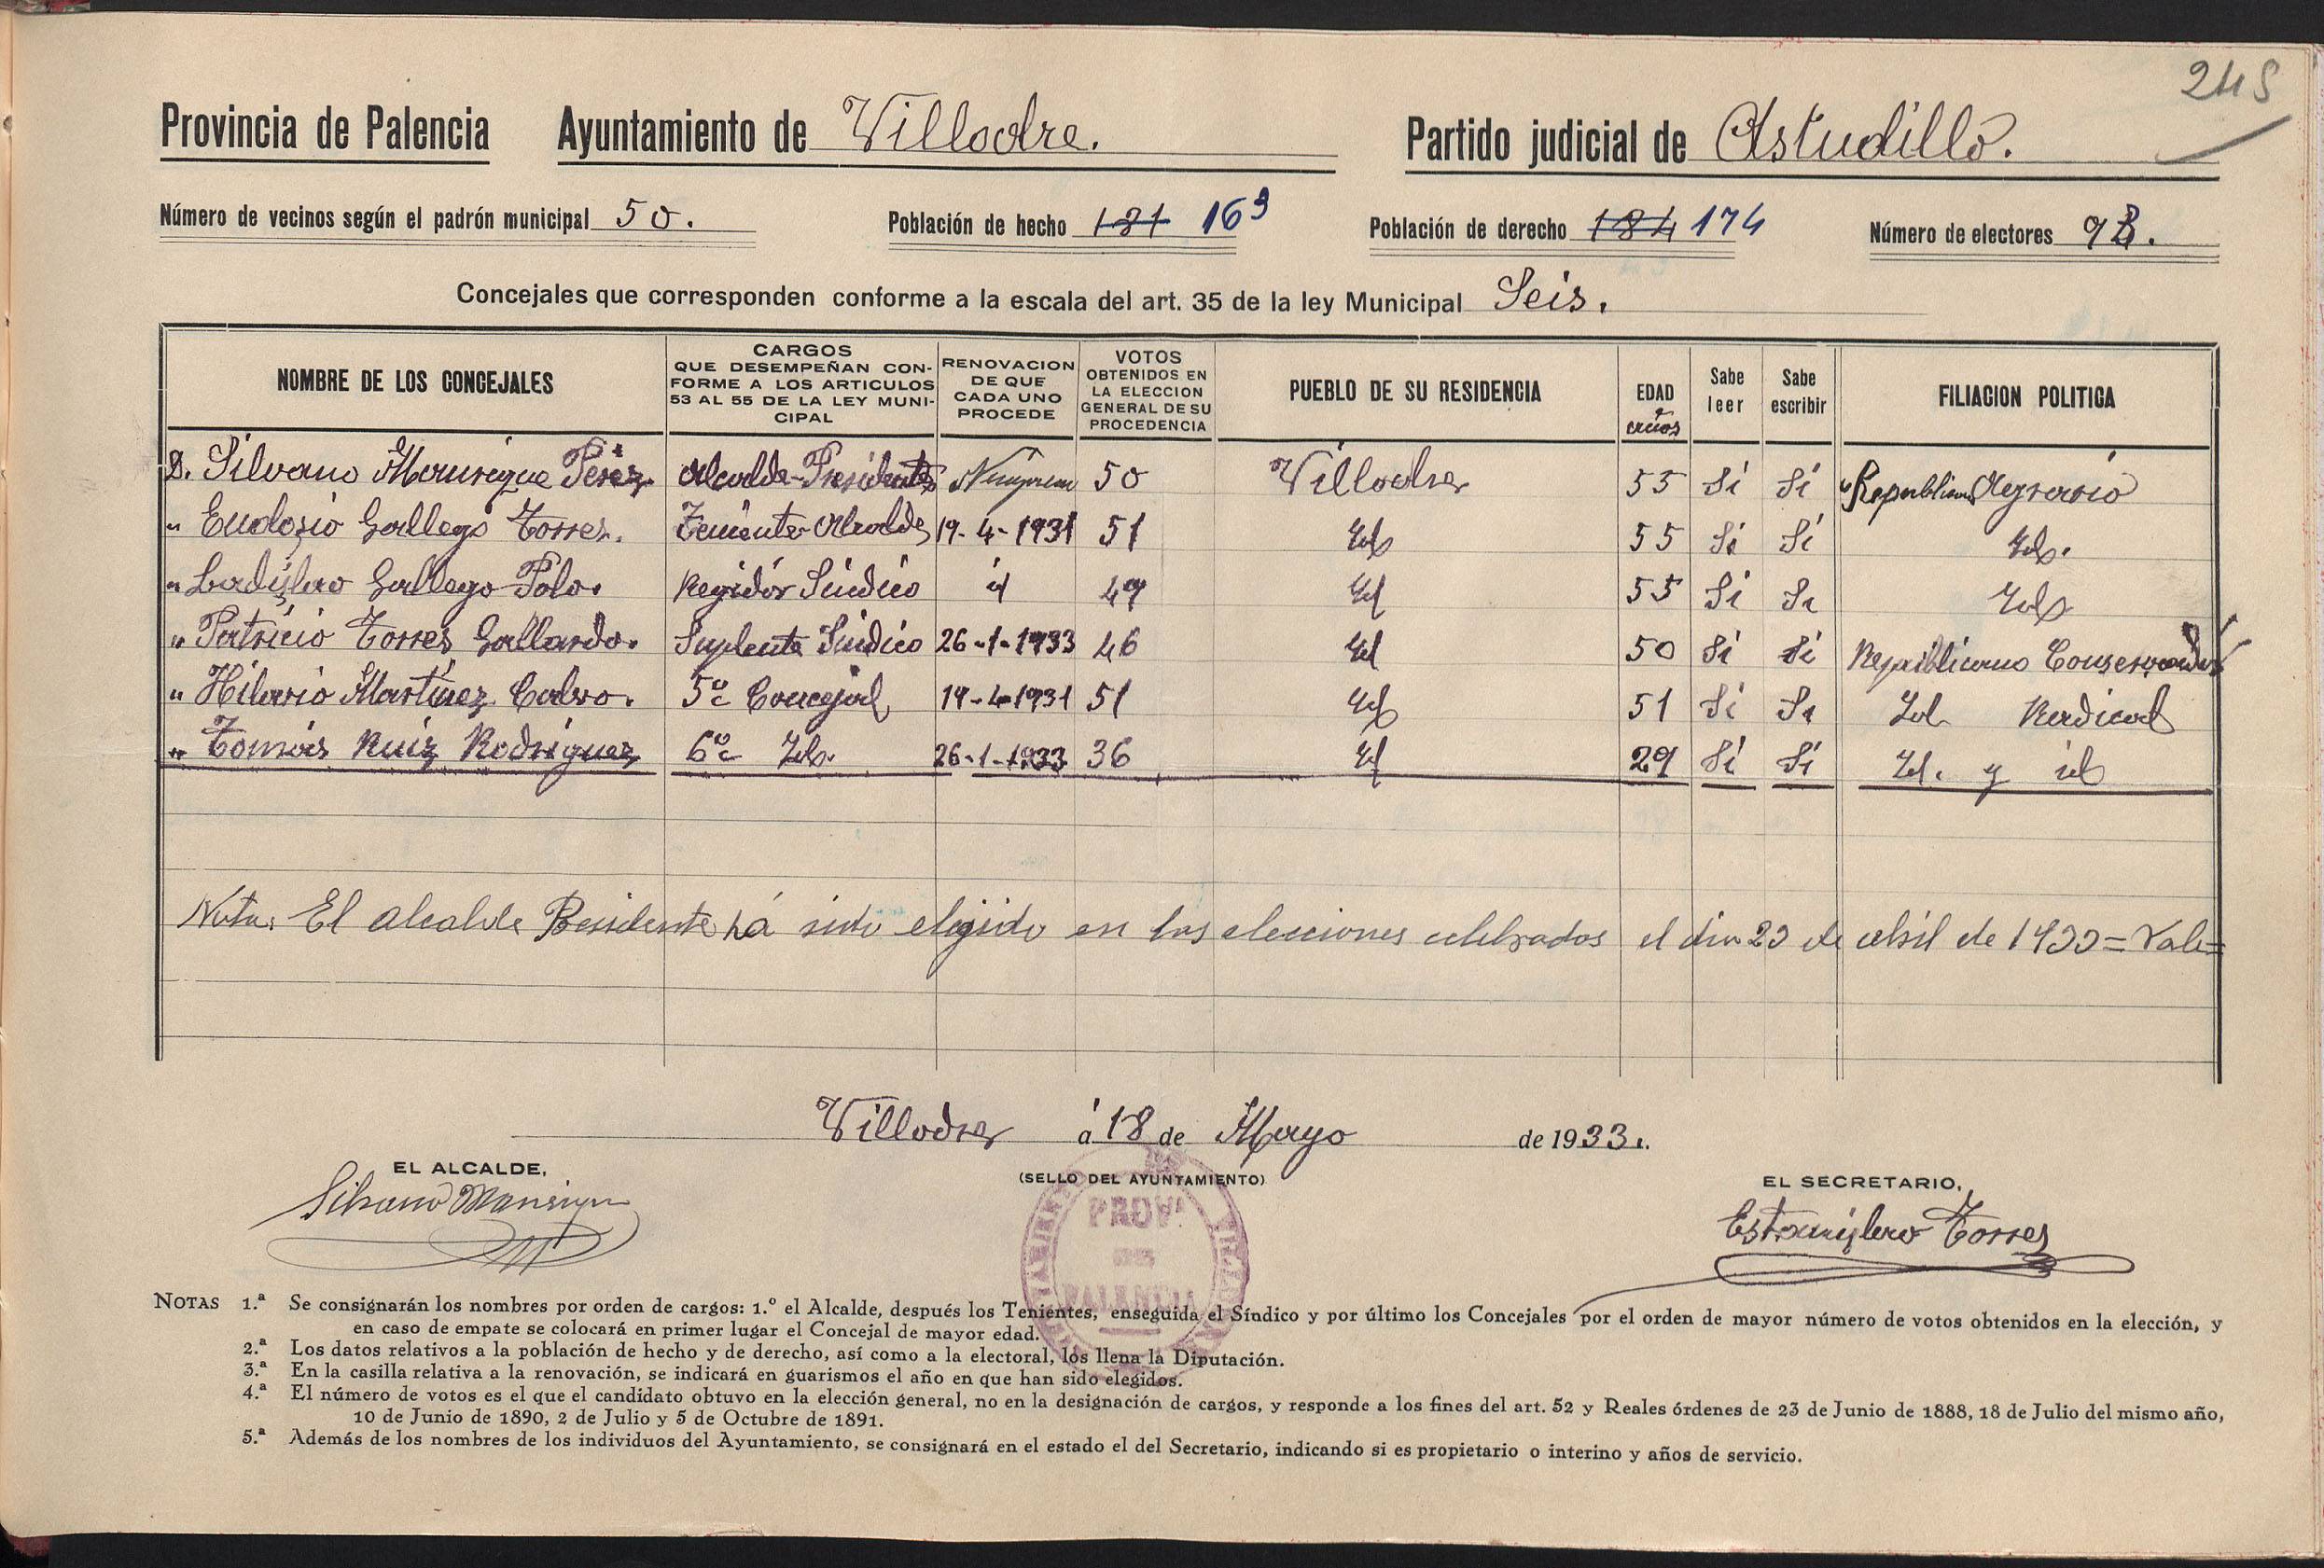 245
Provincia de Palencia Ayuntamiento de Villodre. Partido judicial de Astudillo.
Número de vecinos según el padrón municipal 50. Población de hecho 181 163 Población de derecho 184 174 Número de electores
Concejales que corresponden conforme a la escala del art. 35 de la ley Municipal Seis.
NOMBRE DE LOS CONCEJALES
CARGOS
QUE DESEMPEÑAN CON-
FORME A LOS ARTICULOS
53 AL 55 DE LA LEY MUNI-
CIPAL
RENOVACION
DE QUE
CADA UNO
PROCEDE
VOTOS
OBTENIDOS EN
LA ELECCION
GENERAL DE SU
PROCEDENCIA
PUEBLO DE SU RESIDENCIA
EDAD
años
Sabe
leer
Sabe
escribir
FILIACION POLITICA
D. Silvano Manrique Perez. Alcalde-Presidente Ninguna 50 Villodre 55 Si Si Republicano Agrario
" Eudosio Gallego Torres. Teniente Alcalde 19-4-1931 51 Id 55 Si Si Id.
" Ladislao Gallego Polo. Regidor Sindico id 49 Id 55 Si Si Id
" Patricio Torres Gallardo. Suplente Sindico 26-1-1933 46 Id 50 Si Si Republicano Conservador
" Hilario Martinez Calvo. 5º Concejal 19-4-1931 51 Id 51 Si Si Id Radical
" Tomás Ruiz Rodriguez 6º Id. 26-1-1933 36 Id 29 Si Si Id. y id
Nota: El alcalde Presidente há sido elegido en las elecciones celebradas el dia 23 de abril de 1933=Vale=
Villodre á 18 de Mayo de 1933.
EL ALCALDE,
Silvano Manrique
(SELLO DEL AYUNTAMIENTO)
PROVª
DE
PALENCIA
EL SECRETARIO,
Estanislao Torres
NOTAS 1.ª Se consignarán los nombres por orden de cargos: 1.º el Alcalde, después los Tenientes, enseguida el Síndico y por último los Concejales por el orden de mayor número de votos obtenidos en la elección, y
en caso de empate se colocará en primer lugar el Concejal de mayor edad.
2.ª Los datos relativos a la población de hecho y de derecho, así como a la electoral, los llena la Diputación.
3.ª En la casilla relativa a la renovación, se indicará en guarismos el año en que han sido elegidos.
4.ª El número de votos es el que el candidato obtuvo en la elección general, no en la designación de cargos, y responde a los fines del art. 52 y Reales órdenes de 23 de Junio de 1888, 18 de Julio del mismo año,
10 de Junio de 1890, 2 de Julio y 5 de Octubre de 1891.
5.ª Además de los nombres de los individuos del Ayuntamiento, se consignará en el estado el del Secretario, indicando si es propietario o interino y años de servicio.